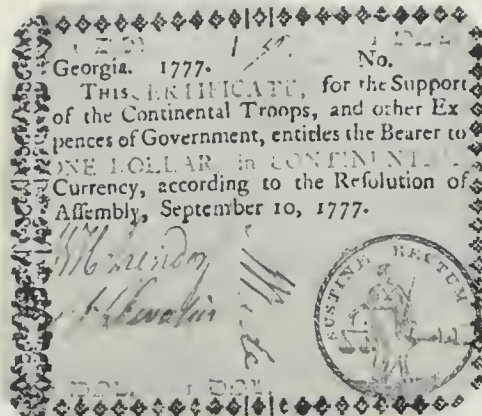 Georgia. 1777. No.
THIS CERTIFICATE, for the Support
of the Continental Troops, and other Ex
pences of Government, entitles the Bearer to
ONE DOLLAR in
Currency, according to the Resolution of
Assembly, September 10, 1777.
SUSTINE RECTUM
DOL. 1 DOL.